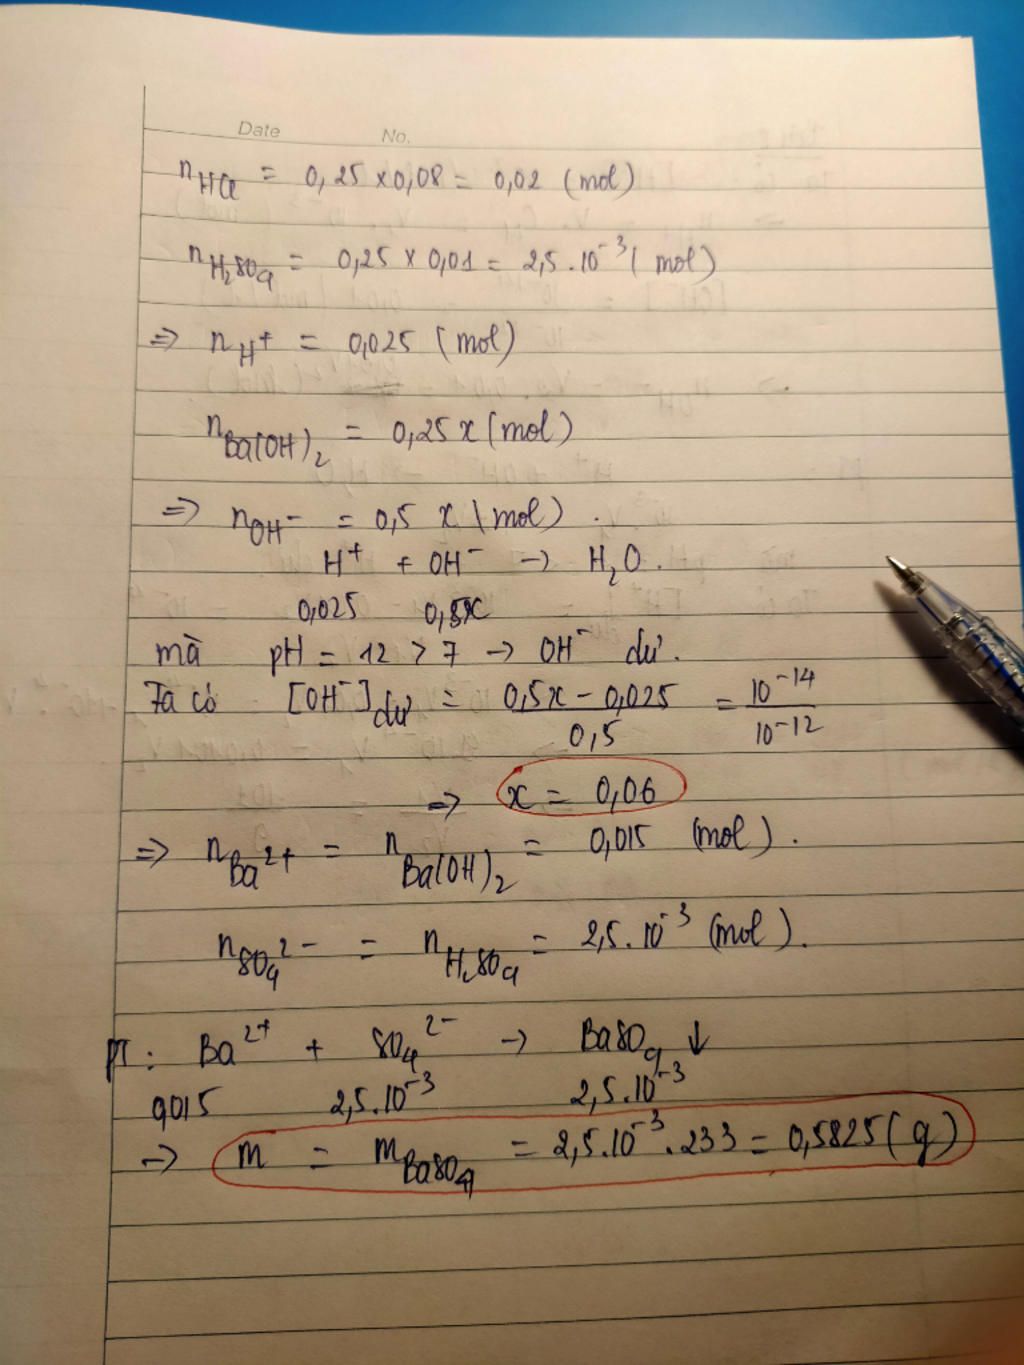 Date No.
n HCl = 0,25 x 0,08 = 0,02 (mol)
n H₂SO₄ = 0,25 x 0,01 = 2,5.10⁻³ (mol)
=> n H⁺ = 0,025 (mol)
n Ba(OH)₂ = 0,25 x (mol)
=> n OH⁻ = 0,5 x (mol).
H⁺ + OH⁻ → H₂O.
0,025 0,5x
mà pH = 12 > 7 → OH⁻ dư.
Ta có [OH⁻] dư = (0,5x - 0,025)/0,5 = 10⁻¹⁴/10⁻¹²
=> x = 0,06
=> n Ba²⁺ = n Ba(OH)₂ = 0,015 (mol).
n SO₄²⁻ = n H₂SO₄ = 2,5.10⁻³ (mol).
PT: Ba²⁺ + SO₄²⁻ → BaSO₄ ↓
0,015 2,5.10⁻³ 2,5.10⁻³
→ m = m BaSO₄ = 2,5.10⁻³.233 = 0,5825 (g)